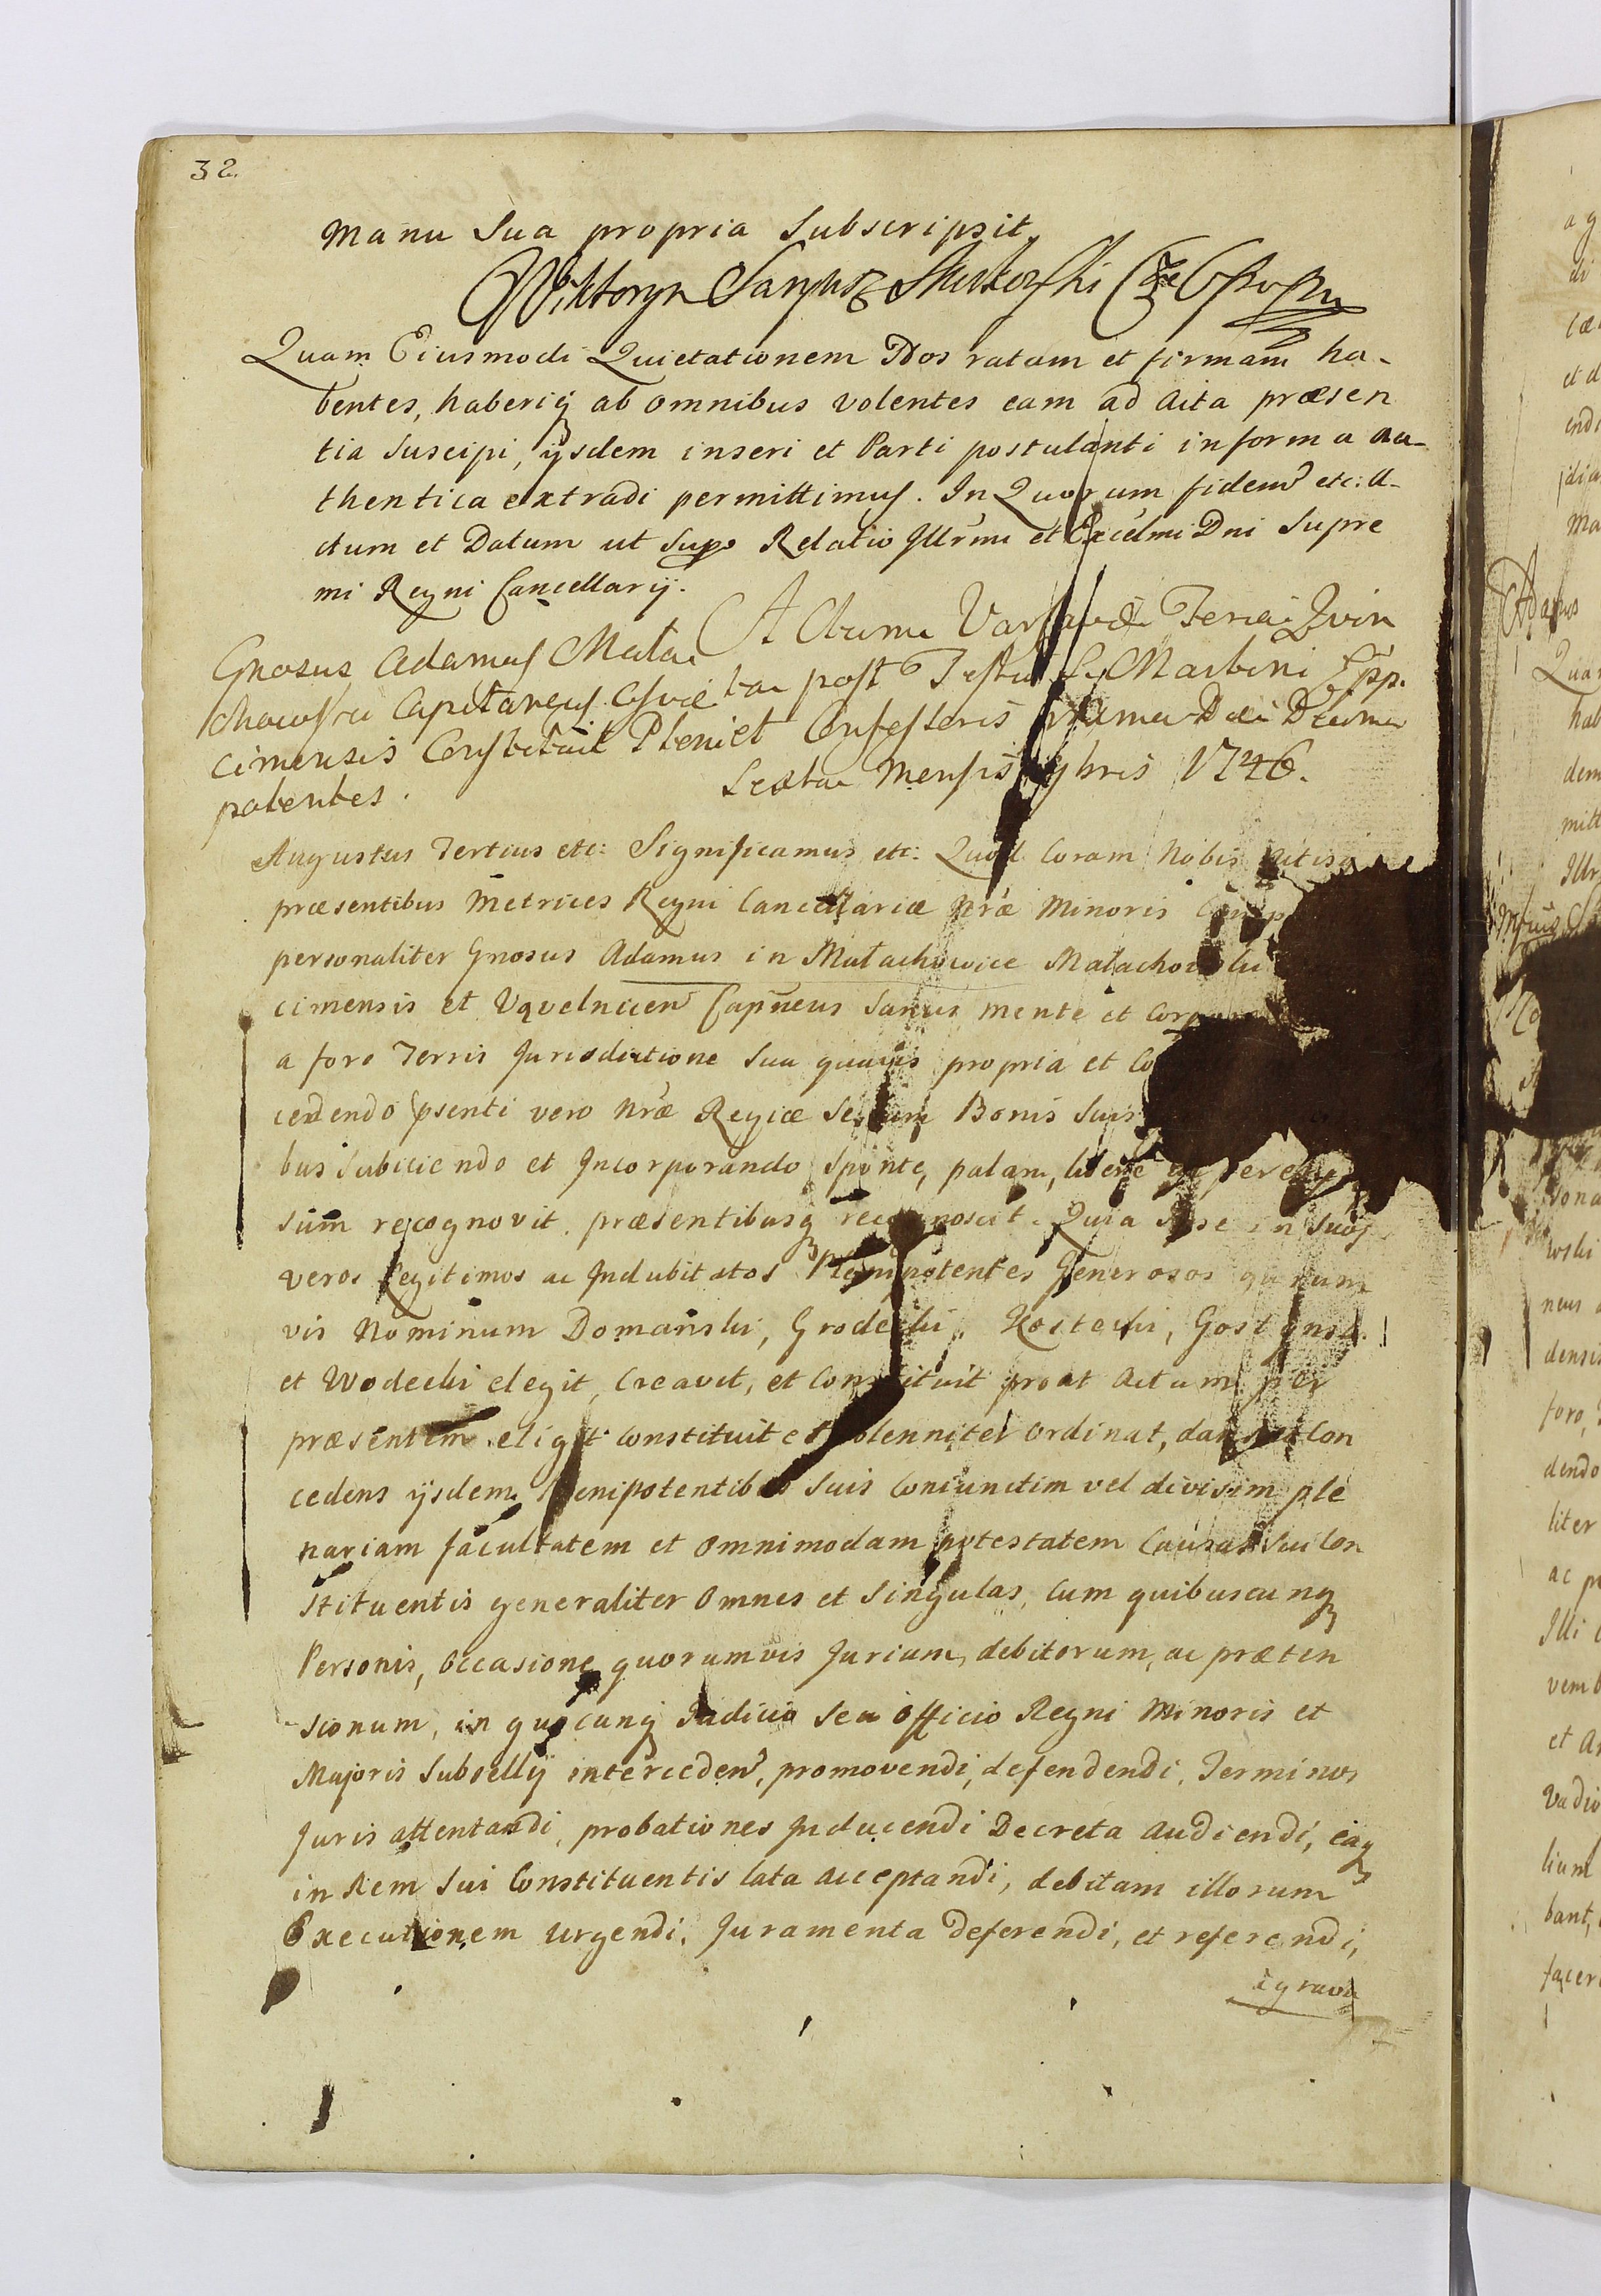 32.
manu Sua propria Subscripsit,
Wiktoryn
Quam Eiusmodi Quietationem Nos ratam et firmam ha-
bentes, haberiq ab omnibus volentes eam ad Acta præsen
tia Suscipi, ijsdem inseri et Parti postulanti in forma au-
thentica extradi permittimus. In Quorum fidem etc: A-
ctum et Datum ut Supo Relatio Illrmi et Excelmi Dni Supre
mi Regni Cancellarij.
Gnosus Adamus Mala
chowski Capitaneus Osvie
cimensis Constituit Pleni
potentes.
Actum Varsaviæ Feria Quin
ta post Festum S. Martini Epp.
et Confessoris Proxima Die Decima
Sexta Mensis 9bris 1746.
Augustus Tertius etc: Significamus etc: Quod Coram Nobis Actisq
præsentibus Metrices Regni Cancellariæ Nræ Minoris
personaliter Gnosus Adamus in Małachowice Małachowski
cimensis et Uqvelnicen Capneus Sanus mente et Corpore
a foro Terris Jurisdictione Sua quavis propria et
cedendo psenti vero Nræ Regiæ Se Bonis Suis
bus Subiiciendo et Incorporando Sponte, palam, libere
sum recognovit præsentibusq recognoscit. Quia ipse in Suos
veros Legitimos ac Indubitatos Plenipotentes Generosos
vis Nominum Domański, Grodecki, Kostecki, Gostynski
et Wodecki elegit, Creavit, et Constituit prout Actum per
præsentem eligit constituit et Solenniter Ordinat, dans et Con
cedens ijsdem Plenipotentibus Suis Coniunctim vel divisim ple
nariam facultatem et omnimodam potestatem Causas Sui Con
stituentis generaliter Omnes et Singulas, Cum quibuscunq
Personis, occasione quorumvis Jurium, debitorum, ac præten
sionum, in quocunq Judicio Seu Officio Regni Minoris et
Majoris Subsellij interceden, promovendi, defendendi, Terminos
Juris attentandi, probationes Inducendi Decreta audiendi, eaq
in Rem Sui Constituentis lata acceptandi, debitam illorum
Executionem urgendi, Juramenta deferendi, et referendi,